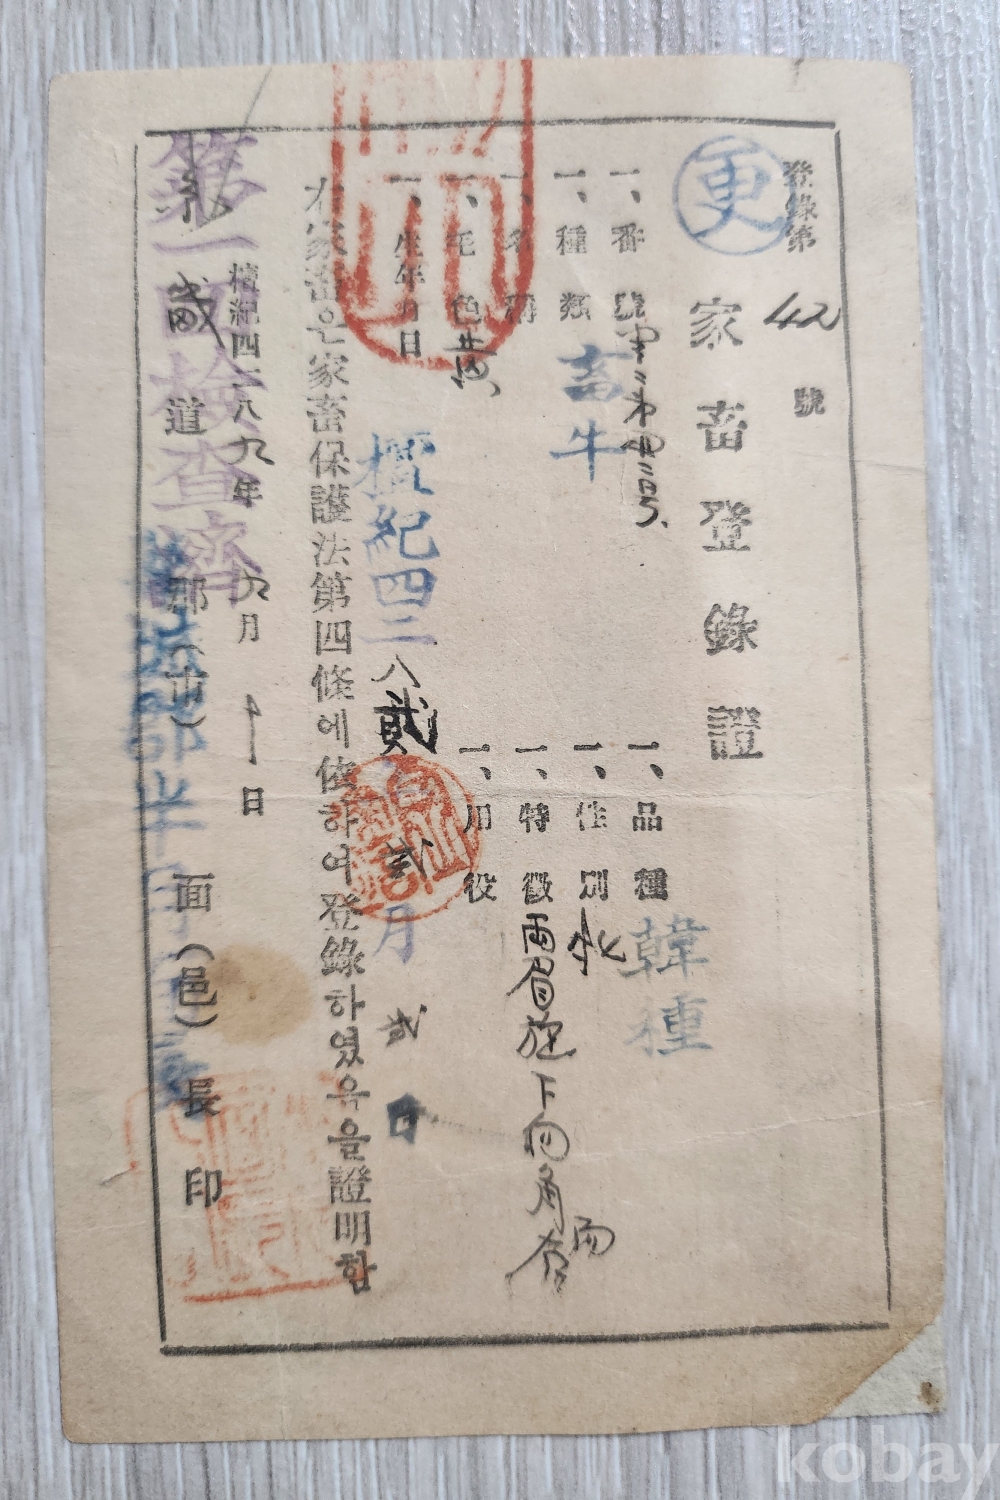 登錄第 42 號
更
家畜登錄證
一、番號
一、種類 畜牛
一、名稱
一、毛色 黄
一、生年月日 檀紀四二八貳年貳月貳日
一、品種 韓種
一、性別 牝
一、特徵
一、用役
右家畜은家畜保護法第四條에依하여登錄하였음을證明함
檀紀四二八九年 九月 日
第一回檢査濟
道 郡(市) 面(邑)長 印
kobay